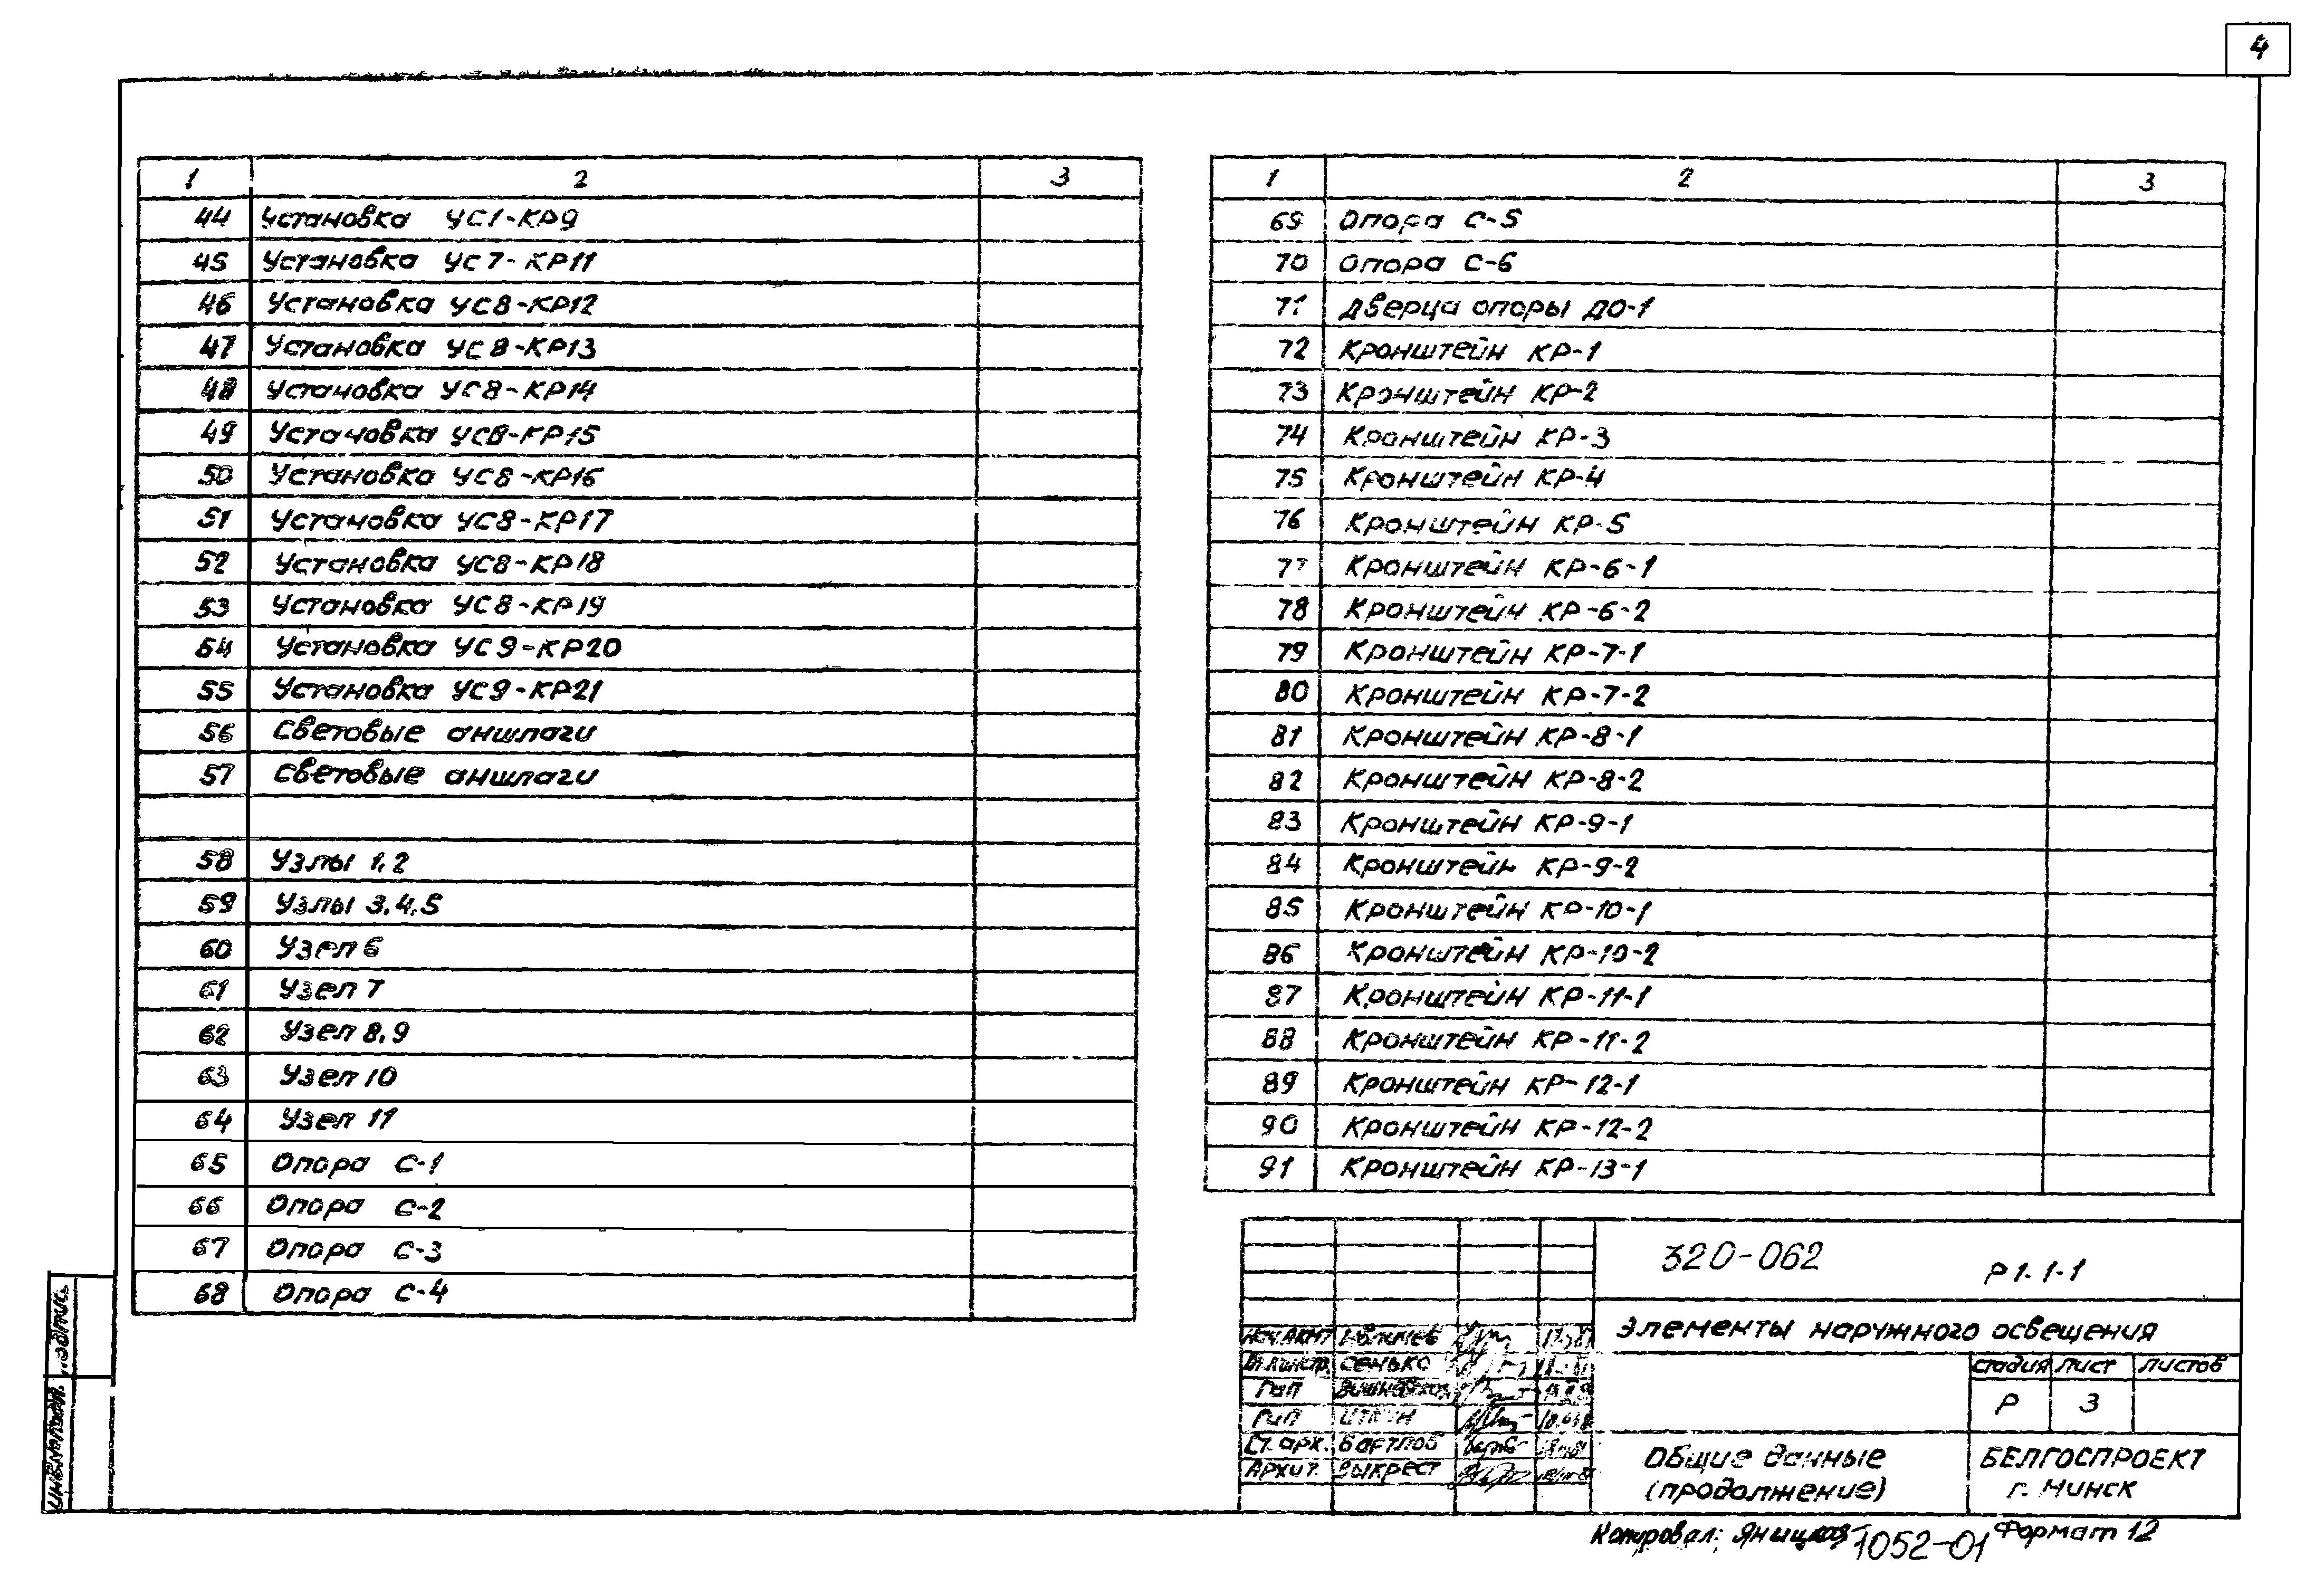 4
1 2 3
44 Установка УС1-КР9
45 Установка УС7-КР11
46 Установка УС8-КР12
47 Установка УС8-КР13
48 Установка УС8-КР14
49 Установка УС8-КР15
50 Установка УС8-КР16
51 Установка УС8-КР17
52 Установка УС8-КР18
53 Установка УС8-КР19
54 Установка УС9-КР20
55 Установка УС9-КР21
56 Световые аншлаги
57 Световые аншлаги
58 Узлы 1,2
59 Узлы 3,4,5
60 Узел 6
61 Узел 7
62 Узел 8,9
63 Узел 10
64 Узел 11
65 Опора С-1
66 Опора С-2
67 Опора С-3
68 Опора С-4
1 2 3
69 Опора С-5
70 Опора С-6
71 Дверца опоры ДО-1
72 Кронштейн КР-1
73 Кронштейн КР-2
74 Кронштейн КР-3
75 Кронштейн КР-4
76 Кронштейн КР-5
77 Кронштейн КР-6-1
78 Кронштейн КР-6-2
79 Кронштейн КР-7-1
80 Кронштейн КР-7-2
81 Кронштейн КР-8-1
82 Кронштейн КР-8-2
83 Кронштейн КР-9-1
84 Кронштейн КР-9-2
85 Кронштейн КР-10-1
86 Кронштейн КР-10-2
87 Кронштейн КР-11-1
88 Кронштейн КР-11-2
89 Кронштейн КР-12-1
90 Кронштейн КР-12-2
91 Кронштейн КР-13-1
320-062 Р1.1-1
Элементы наружного освещения
стадия лист листов
Р 3
Общие данные
(продолжение)
БЕЛГОСПРОЕКТ
г. Минск
Сенько
Гап
Гип Иткин
Ст. арх. Бартлов
Архит. Выкрест
Инв.№ подл. Подпись
Копировал: 1052-01 Формат 12